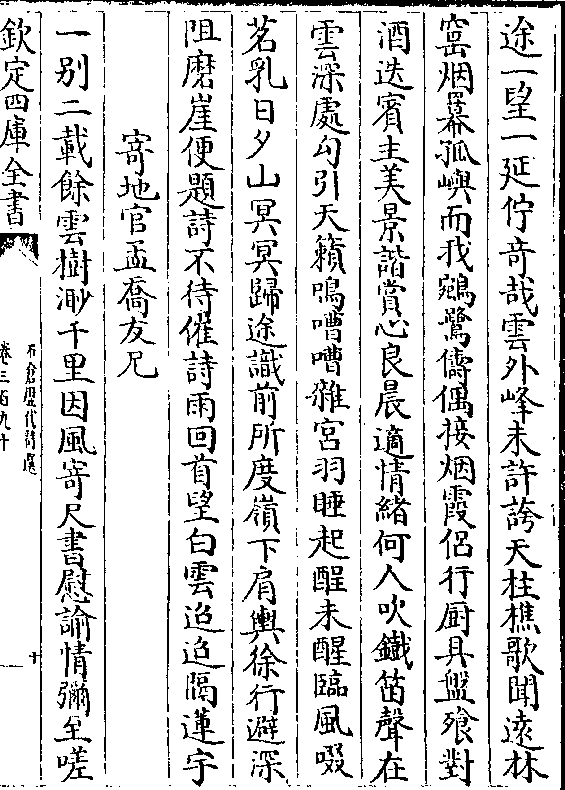 途一望一延佇竒哉雲外峰未許誇天柱樵歌聞遠林
窑烟羃孤嶼而我鵷鷺儔偶接烟霞侣行厨具盤飱對
酒迭賓主美景諧賞心良晨適情緒何人吹鐵笛聲在
雲深處勾引天籟鳴嘈嘈雜宫羽睡起酲未醒臨風啜
茗乳日夕山冥冥歸途識前所度嶺下肩輿徐行避深
阻磨崖便題詩不待催詩雨回首望白雲迢迢隔蓮宇
寄地官孟喬友兄
一别二載餘雲樹渺千里因風寄尺書慰諭情彌至嗟
欽定四庫全書
石倉歴代詩選
卷三百九十
十